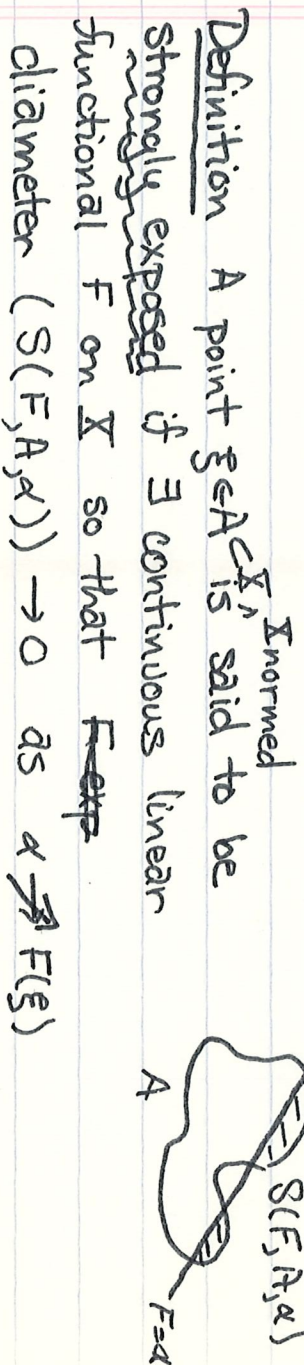 X normed
Definition A point ξ∈A⊂X, is said to be
strongly exposed if ∃ continuous linear
functional F on X so that F exp
diameter (S(F,A,α)) → 0 as α ↗ F(ξ)
S(F,A,α)
A
F=α